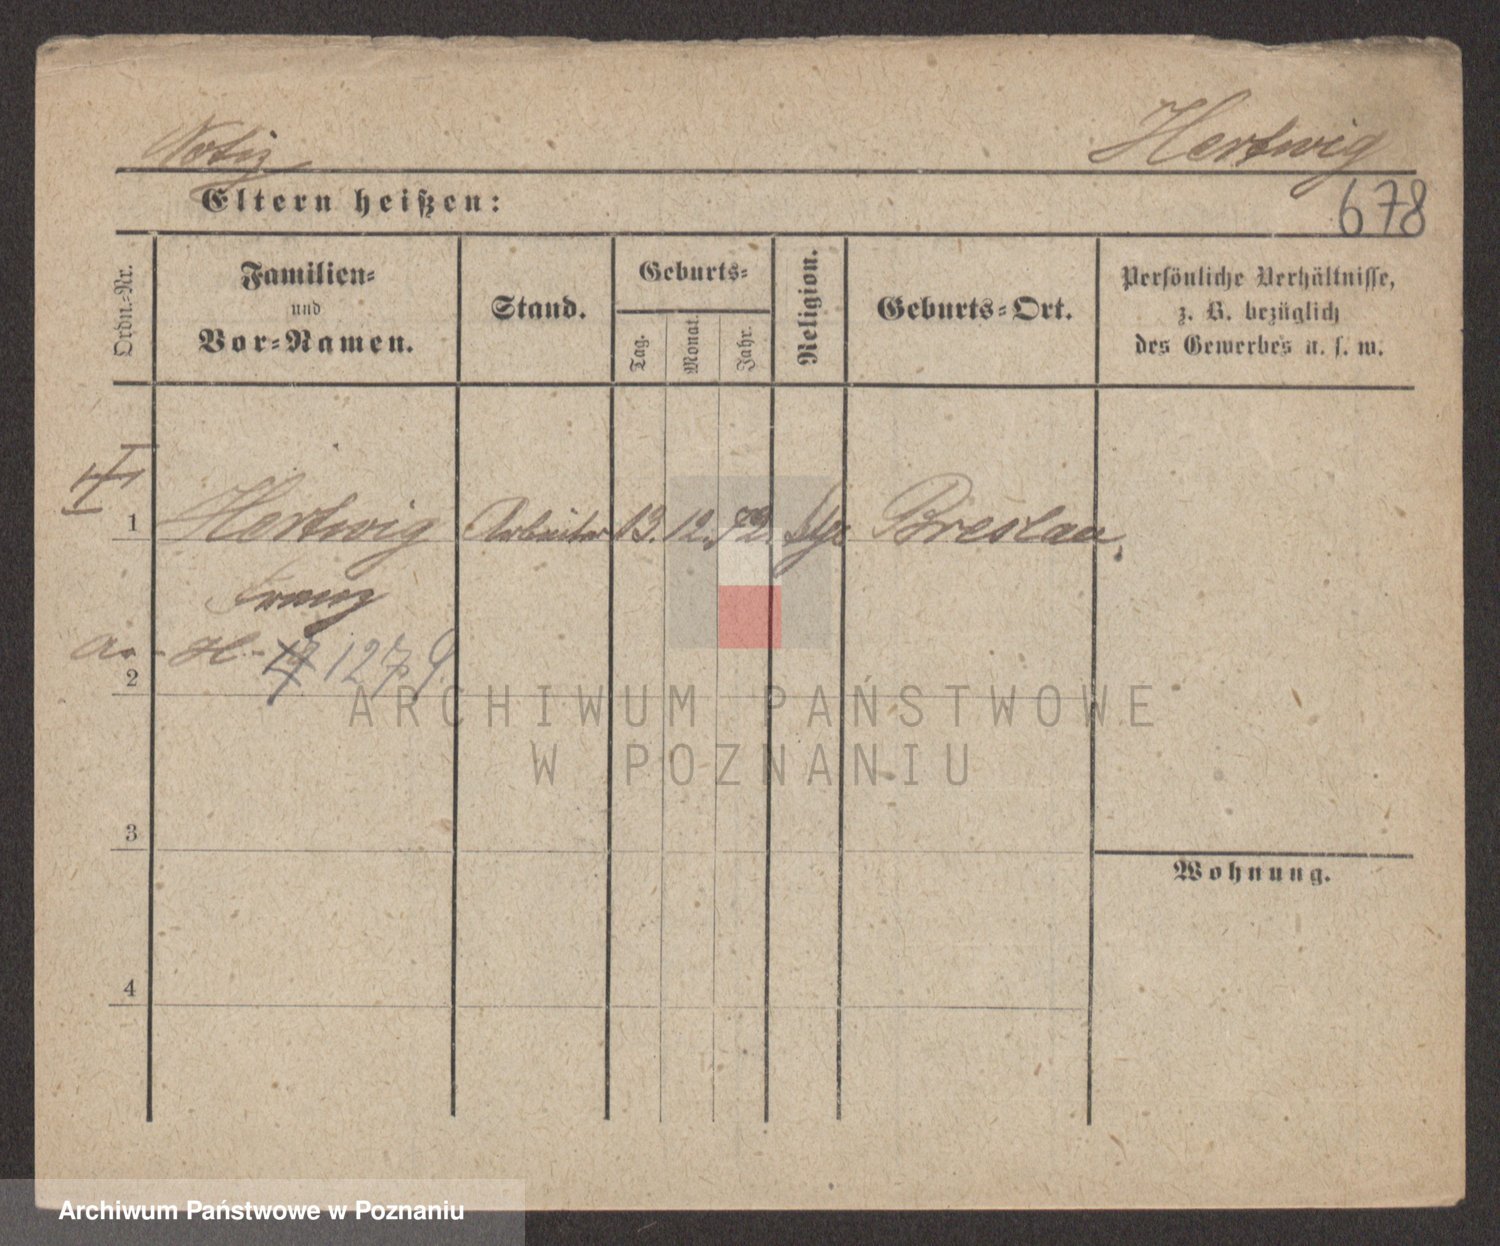 Notiz
Hertwig
Eltern heißen:
678
Ordn.-Nr.
Familien-
und
Vor-Namen.
Stand.
Geburts-
Tag.
Monat.
Jahr.
Religion.
Geburts-Ort.
Persönliche Verhältnisse,
z. B. bezüglich
des Gewerbes u. s. w.
1 Hertwig Arbeiter 13. 12. 72. Breslau
Franz
a. - H. - 1279
2
ARCHIWUM PAŃSTWOWE
W POZNANIU
3
Wohnung.
4
Archiwum Państwowe w Poznaniu